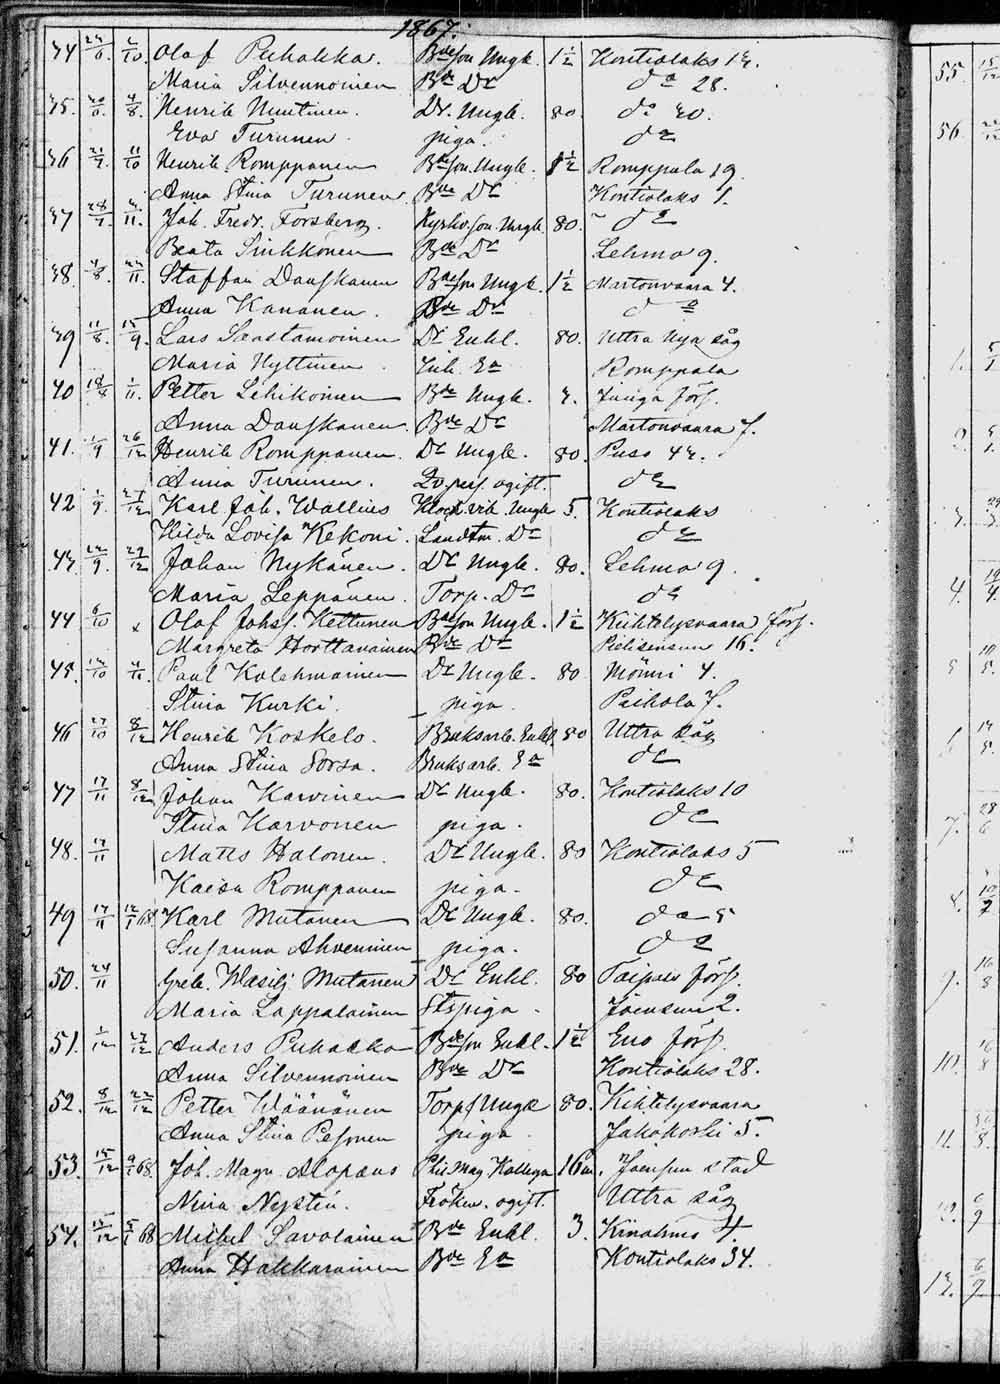 1867.
34 Olof Puhakka. Bdeson Ungk. 1½ Kontiolaks 12.
Maria Silvennoinen Bde Dr do 28.
35. Henrik Nuutinen. Dr. Ungk. 80. do 40.
Eva Turunen piga. do
36 Henrik Romppanen Bdeson. Ungk. 1½ Romppala 19.
Anna Stina Turunen Bde Dr Kontiolaks 1.
37 Joh. Fredr. Forsberg. Kyrkv.son Ungk. 80. do
Beata Sinkkonen Bde Dr Lehmo 9.
38. Staffan Danskanen Bdeson Ungk. 1½ Martonvaara 4.
Anna Kananen. Bde Dr do
39 11/8. 15/9. Lars Saastamoinen Dr Enkl. 80. Uttra Nya såg
Maria Hyttinen Inh. Ea Romppala
40 1/11. Petter Lehikoinen Bde Ungk. 3. Juuga förs.
Anna Danskanen. Bde Dr Martonvaara 7.
41. 1/9 26/12 Henrik Romppanen. Dr Ungk. 80. Puso 42.
Anna Turunen. Qv.pers. ogift. do
42 1/9. 27/12 Karl Joh. Wallius Ungk 5. Kontiolaks
Hilda Lovisa Kekoni. Landtm. Dr do
43 22/9. 29/12 Johan Nykänen. Dr Ungk. 80. Lehmo 9.
Maria Leppänen. Torp. Dr do
44 6/10 x Olof Johss. Kettunen Bdeson Ungk. 1½ Kihtelysvaara förs.
Margreta Horttanainen Bde Dr Pielisensuu 16.
45. 4/11. Paul Kolehmainen Dr Ungk. 80 Mönni 4.
Stina Kurki. piga Paihola 7.
46 27/10 8/12 Henrik Koskelo. Bruksarb. Enkl. 80 Uttra såg
Anna Stina Sorsa. Bruksarb. Ea do
47 17/11 8/12 Johan Karvinen Dr Ungk. 80. Kontiolaks 10
Stina Karvonen piga. do
48. 17/11 Matts Halonen. Dr Ungk. 80 Kontiolaks 5
Kaisa Romppanen piga. do
49 17/11 12/1 68 Karl Mutanen Dr Ungk. 80. do 5
Susanna Ahveninen piga. do
50. 24/11 Grek. Wasilj Mutanen Dr Enkl. 80 Taipale förs.
Maria Lappalainen Stspiga. Joensuu 2.
51. 1/12 27/12 Anders Puhakka Bdeson Enkl. 1½ Eno förs.
Anna Silvennoinen Bde Dr Kontiolaks 28.
52. 8/12 22/12 Petter Wäänänen Torps Ungk 80. Kihtelysvaara
Anna Stina Pesonen piga. Jakokoski 5.
53. 15/12 9/1 68. Joh. Magn. Alopæus Phil Mag. Kollega 16 m. Joensuu stad
Nina Nystén. Fröken. ogift. Uttra såg
54. 15/12 5/1 68 Mickel Savolainen Bde Enkl. 3. Kinahmo 4.
Anna Hakkarainen Bde Ea Kontiolaks 34.
55. 15/12
56.
1. 5/1
4.
5
7. 28/6
8.
9. 16/8
10. 16/8
11.
12. 6/9
13. 6/9